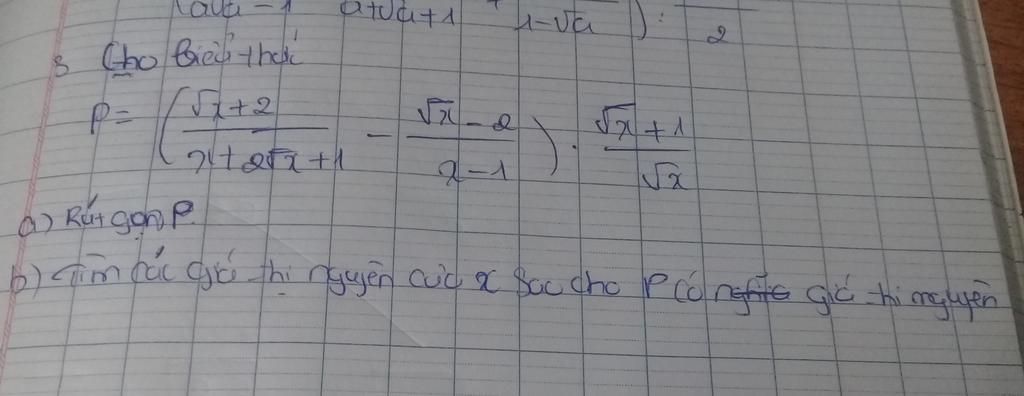 (a√a - 1 a+√a+1 + 1-√a ) : 2
3 Cho biểu thức
P = ( √x + 2 / x + 2√x + 1 - √x - 2 / x - 1 ) . √x + 1 / √x
a) Rút gọn P
b) Tìm các giá trị nguyên của x sao cho P có giá trị nguyên